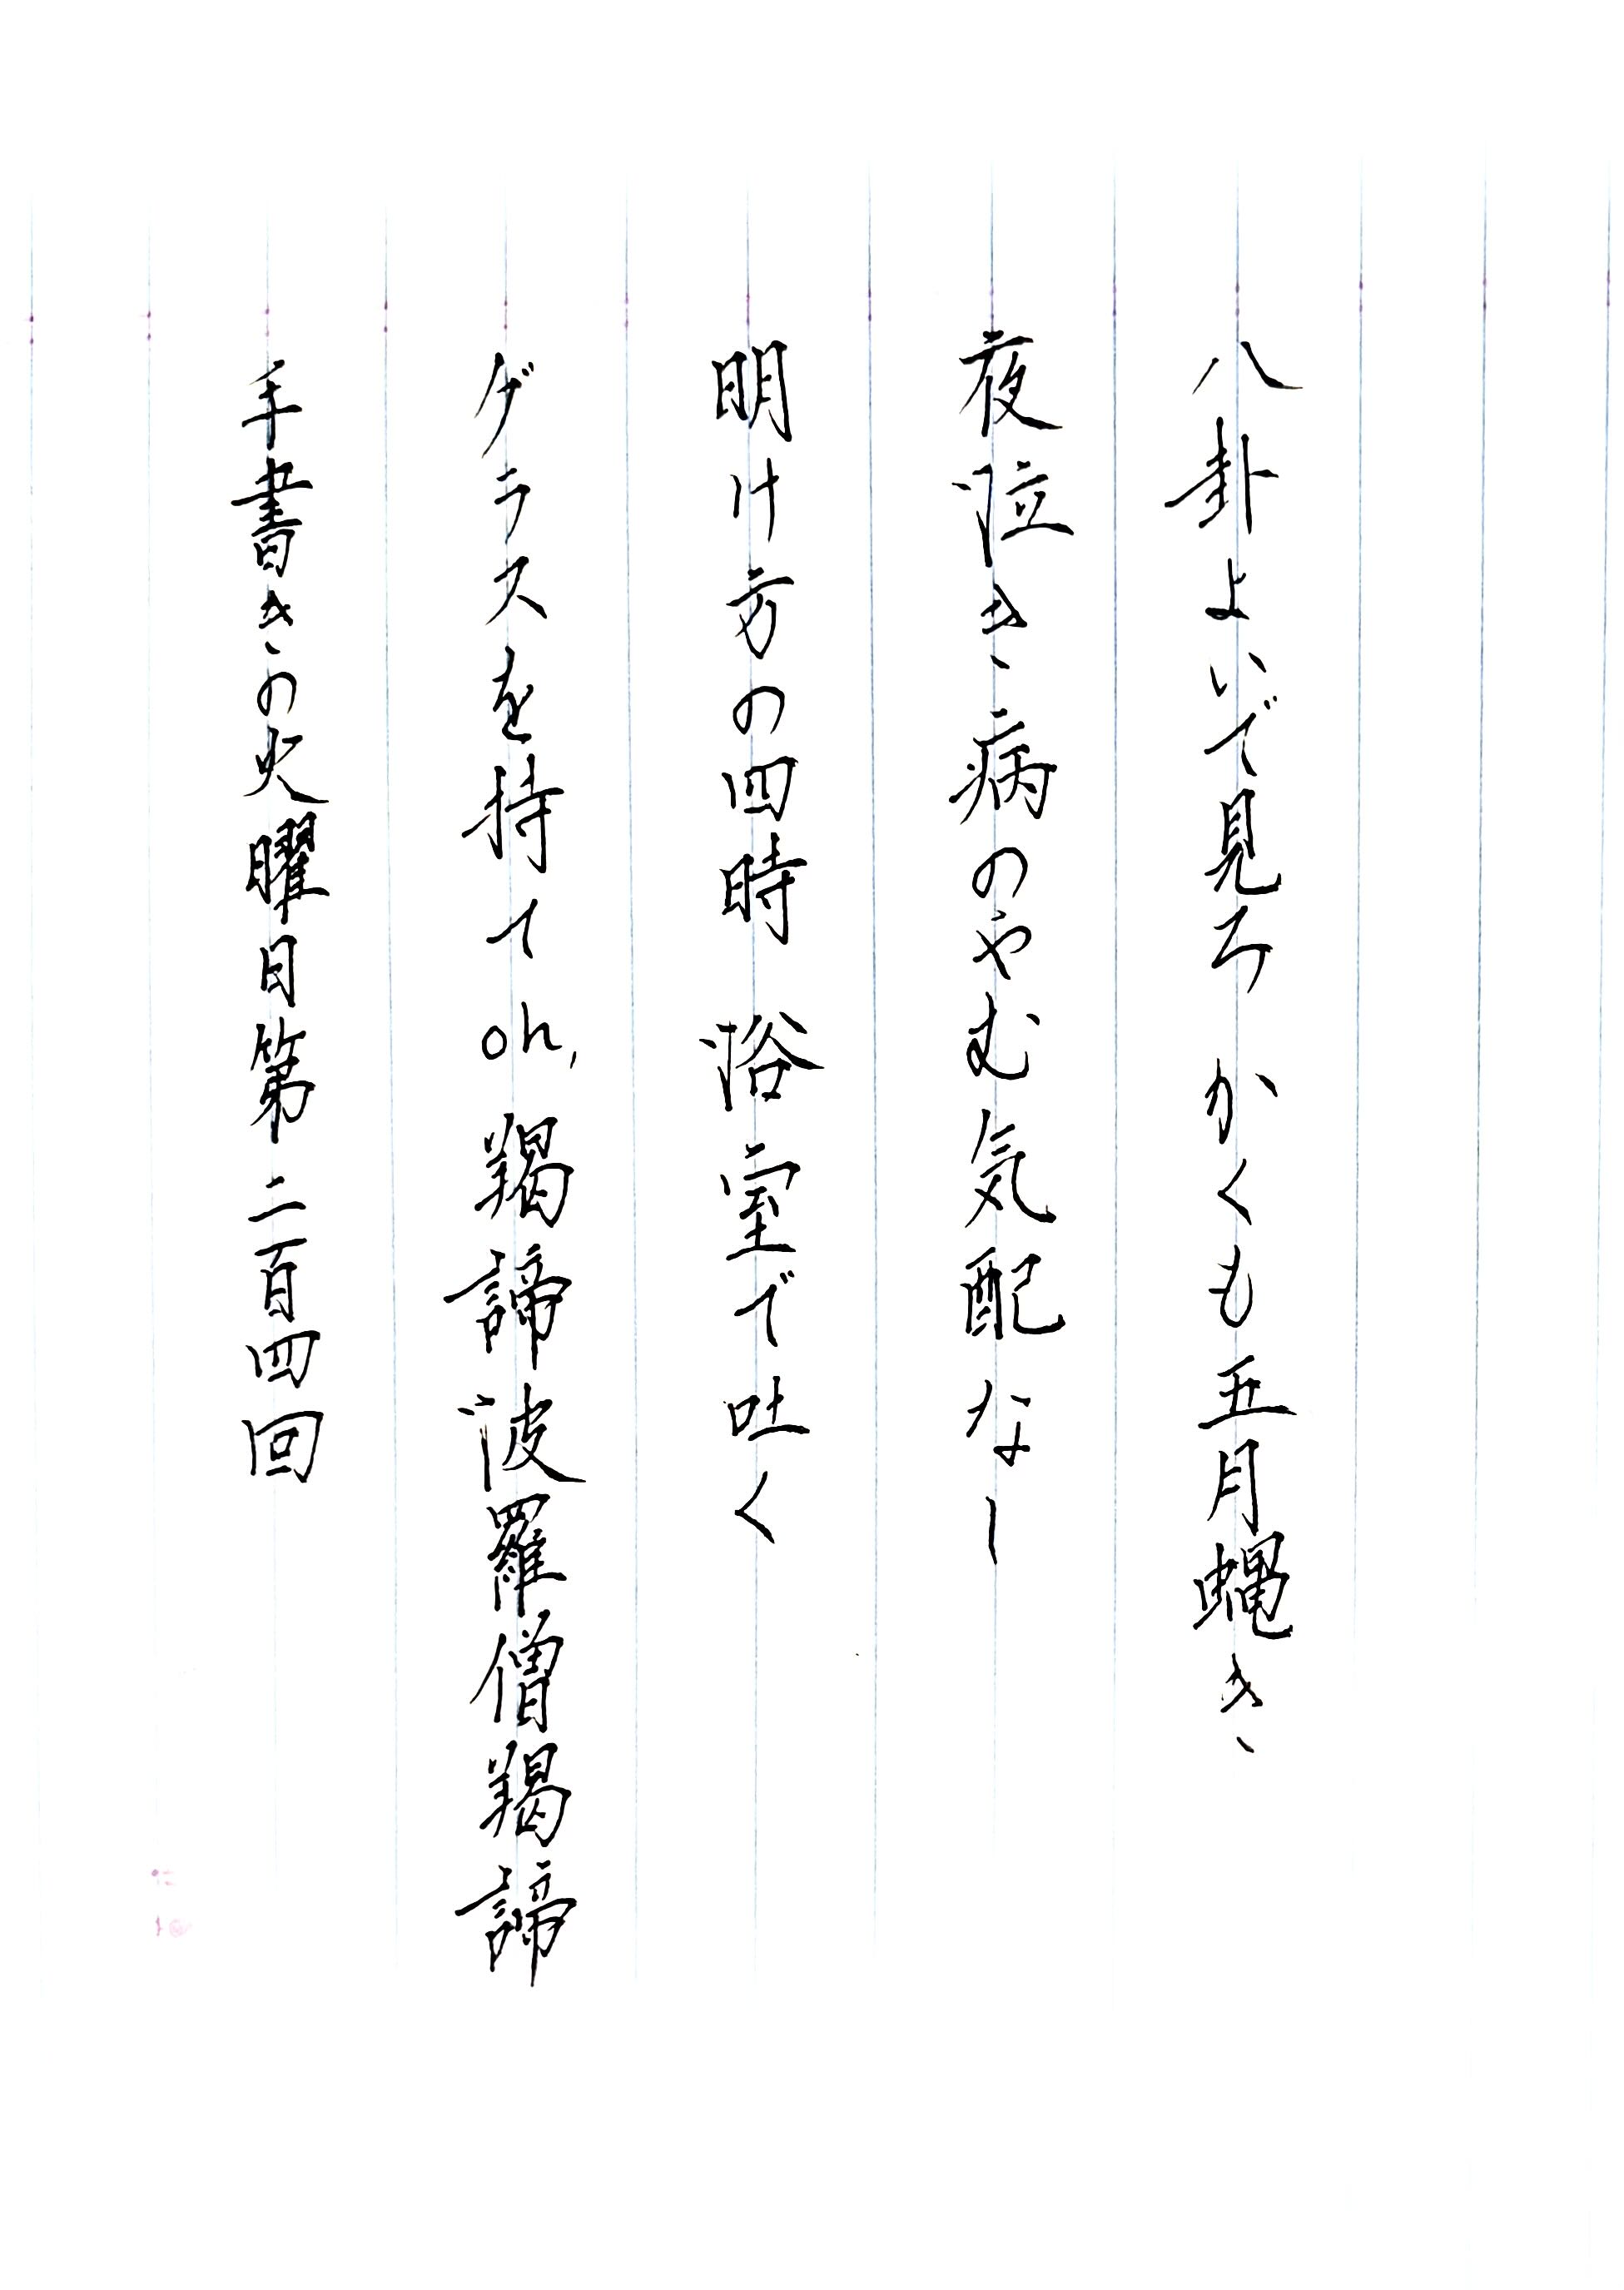 八卦よいで見ろ かくも五月蝿き
夜泣き病のやむ気配なし
明け方の四時 浴室で吐く
グラスを持てoh,羯諦波羅僧羯諦
手書きの火曜日第二百四回